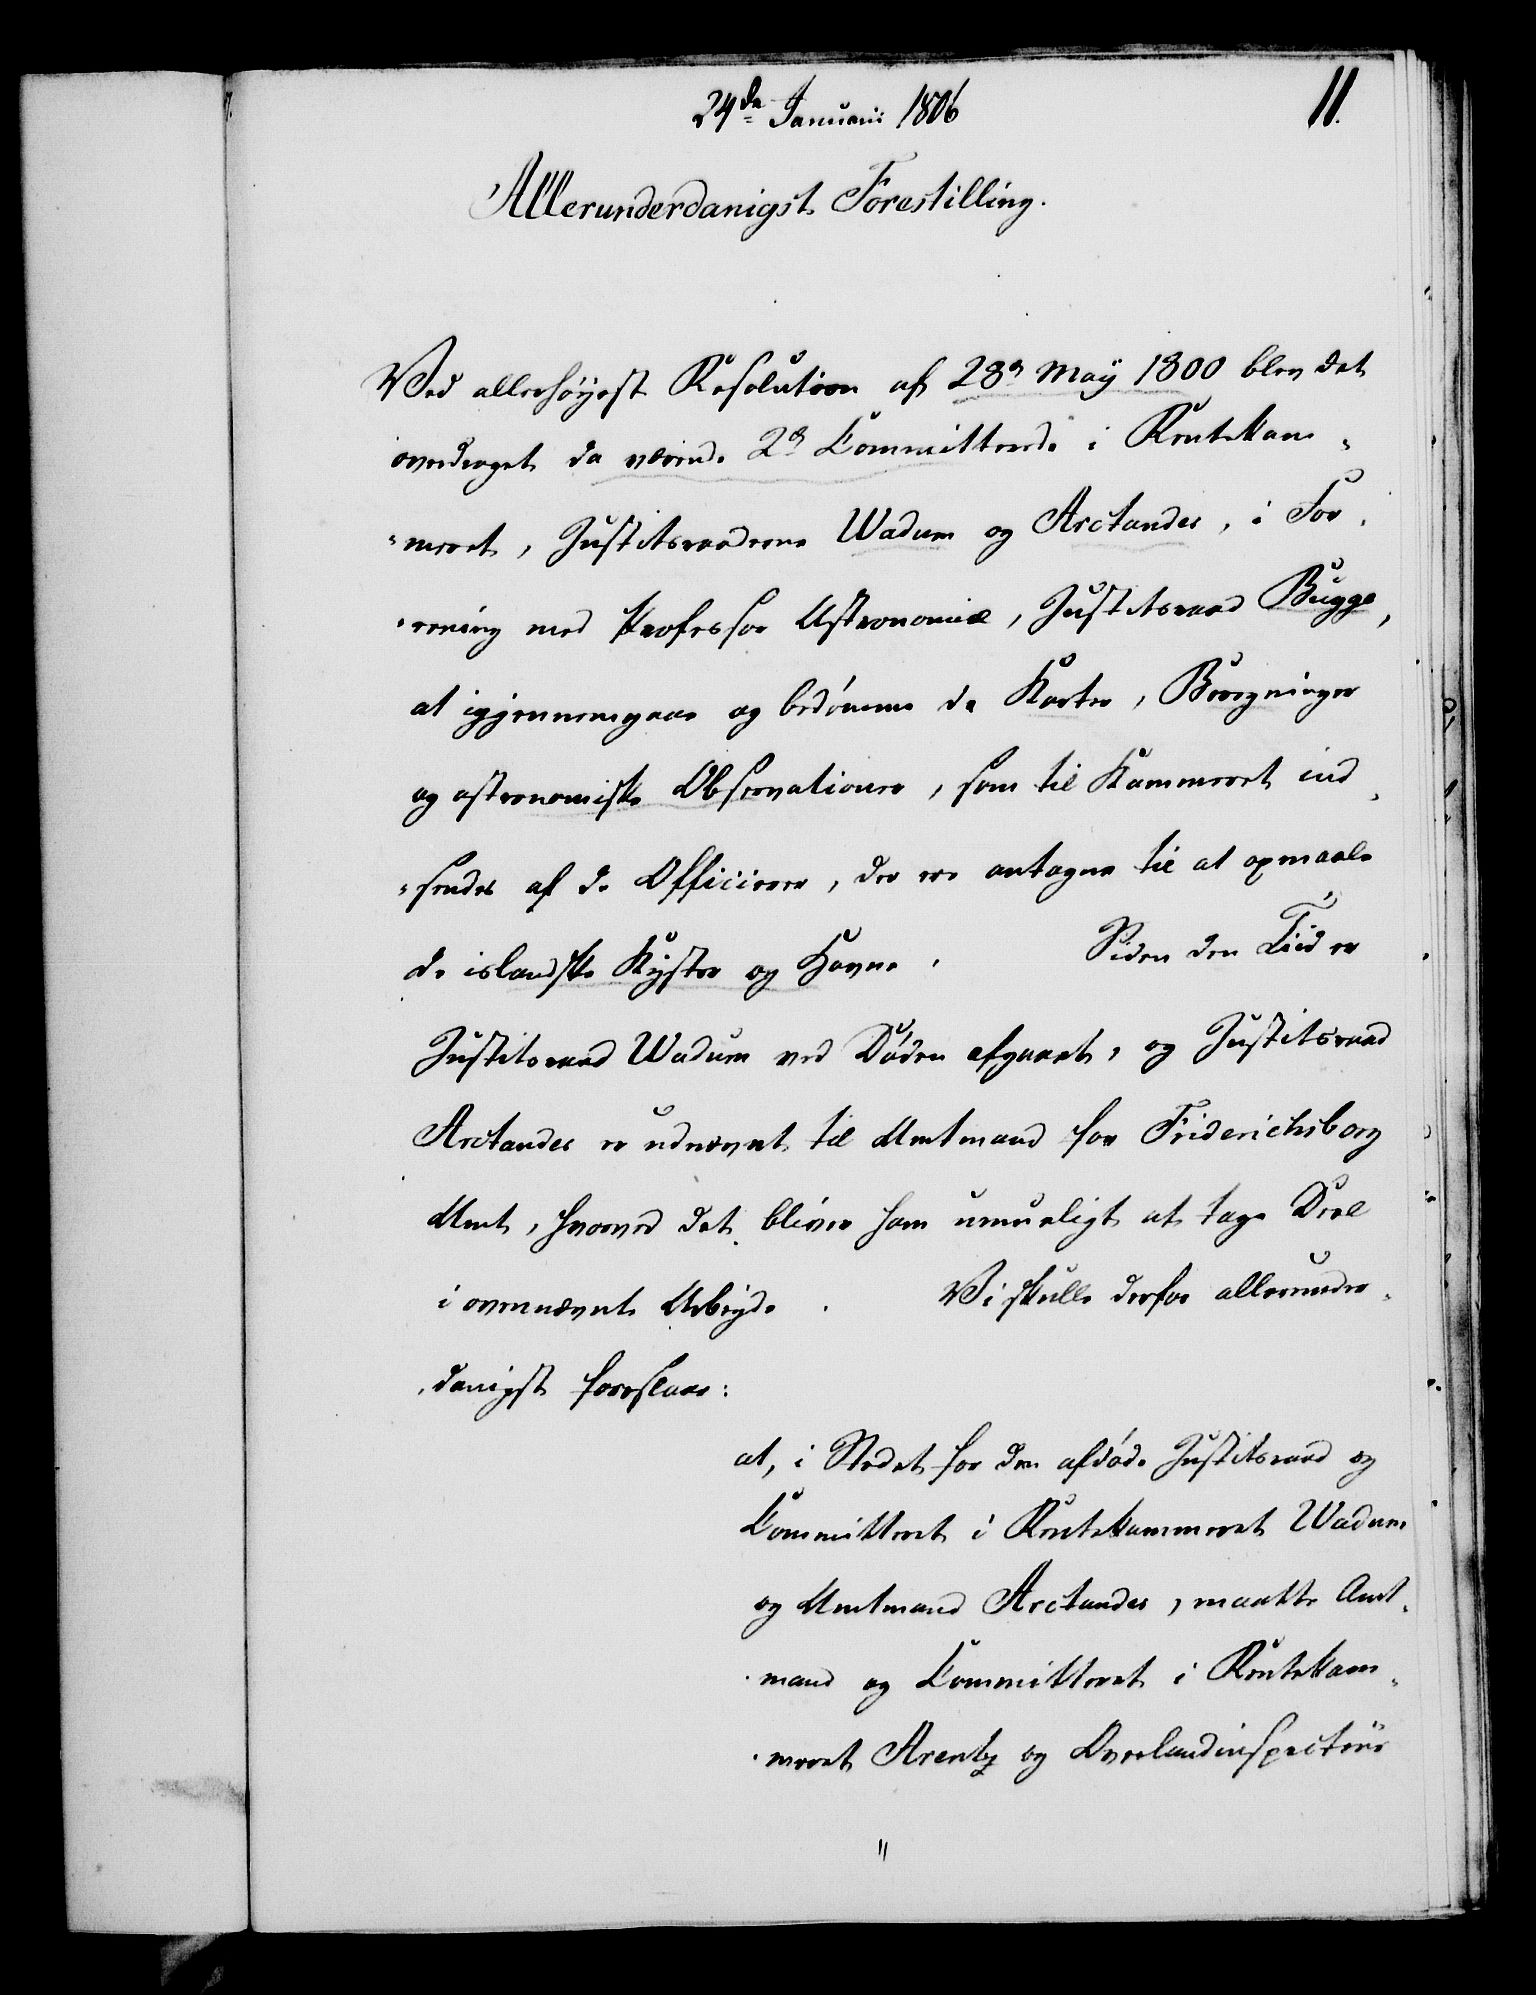 24de Januarii 1806
11.
Allerunderdanigst Forestilling.
Ved allerhöyest Resolution af 28n Maÿ 1800 blev det
overdraget da værende 2de Committerede i Rentekam-
meret, Justitsraaderne Wadum og Arctander, i For-
-eening med Professor Astronomiæ, Justitsraad Bugge,
at igjennemgaae og bedömme de Karter, Beregninger
og astronomiske Observationer, som til Kammeret ind-
-sendes af de Officierer, der ere antagne til at opmaale
de islandske Kyster og Havne. Siden den Tiid er
Justitsraad Wadum ved Döden afgaaet, og Justitsraad
Arctander er udnævnt til Amtmand for Friderichsborg
Amt, hvorved det bliver ham umueligt at tage Deel
i ovennævnte Arbeyde. Vi skulle derfor allerunder-
-danigst foreslaae:
at, i Stedet for den afdöde Justitsraad og
Committeret i Rentekammeret Wadum
og Amtmand Arctander, maatte Amt-
-mand og Committeret i Rentekam-
-meret Arentz og Overlandinspecteur
"